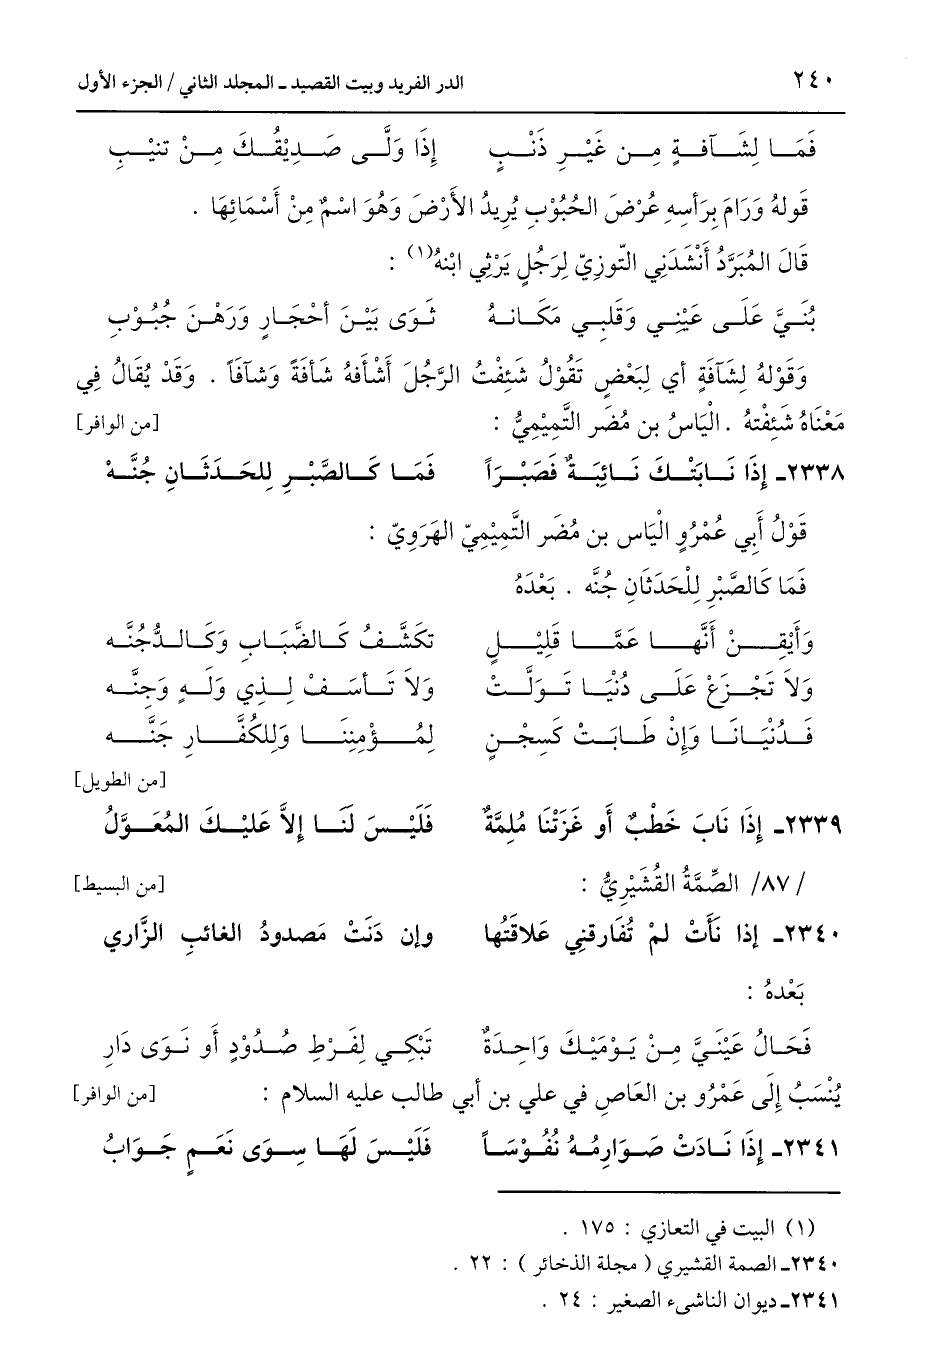 ٢٤٠ الدر الفريد وبيت القصيد ـ المجلد الثاني / الجزء الأول
فَمَا لِشَآفةٍ مِن غَيْرِ ذَنْبٍ إِذَا وَلَّى صَدِيْقُكَ مِنْ تنيْبِ
قَولهُ وَرَامَ بِرَأسِهِ عُرْضَ الحُبُوْبِ يُرِيدُ الأَرْضَ وَهُوَ اسْمٌ مِنْ أَسْمَائِهَا .
قَالَ المُبَرَّدُ أَنْشَدَنِي التّوزِيّ لِرَجُلٍ يَرْثِي ابْنهُ(١) :
بُنَيَّ عَلَى عَيْنِي وَقَلبِي مَكَانهُ ثَوَى بَيْنَ أحْجَارٍ وَرَهْنَ جُبُوْبِ
وَقَولهُ لِشَآفَةٍ أي لِبَعْضٍ تَقُوْلُ شَئِفْتُ الرَّجُلَ أَشْأَفهُ شَأفَةً وَشَآفَاً . وَقَدْ يُقَالُ فِي
مَعْنَاهُ شَئِفْتهُ . الْيَاسُ بن مُضَر التَّمِيْمِيُّ : [من الوافر]
٢٣٣٨ـ إِذَا نَابَتْكَ نَائِبَةٌ فَصَبْرَاً فَمَا كَالصَّبْرِ لِلحَدَثَانِ جُنَّهْ
قَوْلُ أَبي عُمْرُوٍ الْيَاس بن مُضَر التَّمِيْمِيّ الهَرَوِيّ :
فَمَا كَالصَّبْرِ لِلْحَدَثَانِ جُنَّه . بَعْدَهُ
وَأَيْقِنْ أَنَّها عَمَّا قَلِيْلٍ تكَشَّفُ كَالضَّبَابِ وَكَالدُّجُنَّه
وَلاَ تَجْزَعْ عَلَى دُنْيَا تَوَلَّتْ وَلاَ تَأسَفْ لِذِي وَلَهٍ وَجِنَّه
فَدُنْيَانَا وَإِنْ طَابَتْ كَسِجْنٍ لِمُؤْمِنِنَا وَلِلكُفَّارِ جَنَّه
[من الطويل]
٢٣٣٩ـ إِذَا نَابَ خَطْبٌ أَو عَرَتْنَا مُلِمَّةٌ فَلَيْسَ لَنَا إِلاَّ عَليْكَ المُعَوَّلُ
/ ٨٧/ الصِّمَّةُ القُشَيْرِيُّ : [من البسيط]
٢٣٤٠ـ إذا نَأَتْ لمْ تُفَارقنِي عَلاقَتُها وإن دَنَتْ مَصدودُ الغائبِ الزَّاري
بَعْدهُ :
فَحَالُ عَيْنَيَّ مِنْ يَوْمَيْكَ وَاحِدَةٌ تَبْكِي لِفَرْطِ صُدُوْدٍ أَو نَوَى دَارِ
يُنْسَبُ إِلَى عَمْرُو بن العَاصِ في علي بن أبي طالب عليه السلام : [من الوافر]
٢٣٤١ـ إِذَا نَادَتْ صَوَارِمُهُ نُفُوْسَاً فَلَيْسَ لَهَا سِوَى نَعَمٍ جَوَابُ
(١) البيت في التعازي : ١٧٥ .
٢٣٤٠ـ الصمة القشيري ( مجلة الذخائر ) : ٢٢ .
٢٣٤١ـ ديوان الناشىء الصغير : ٢٤ .